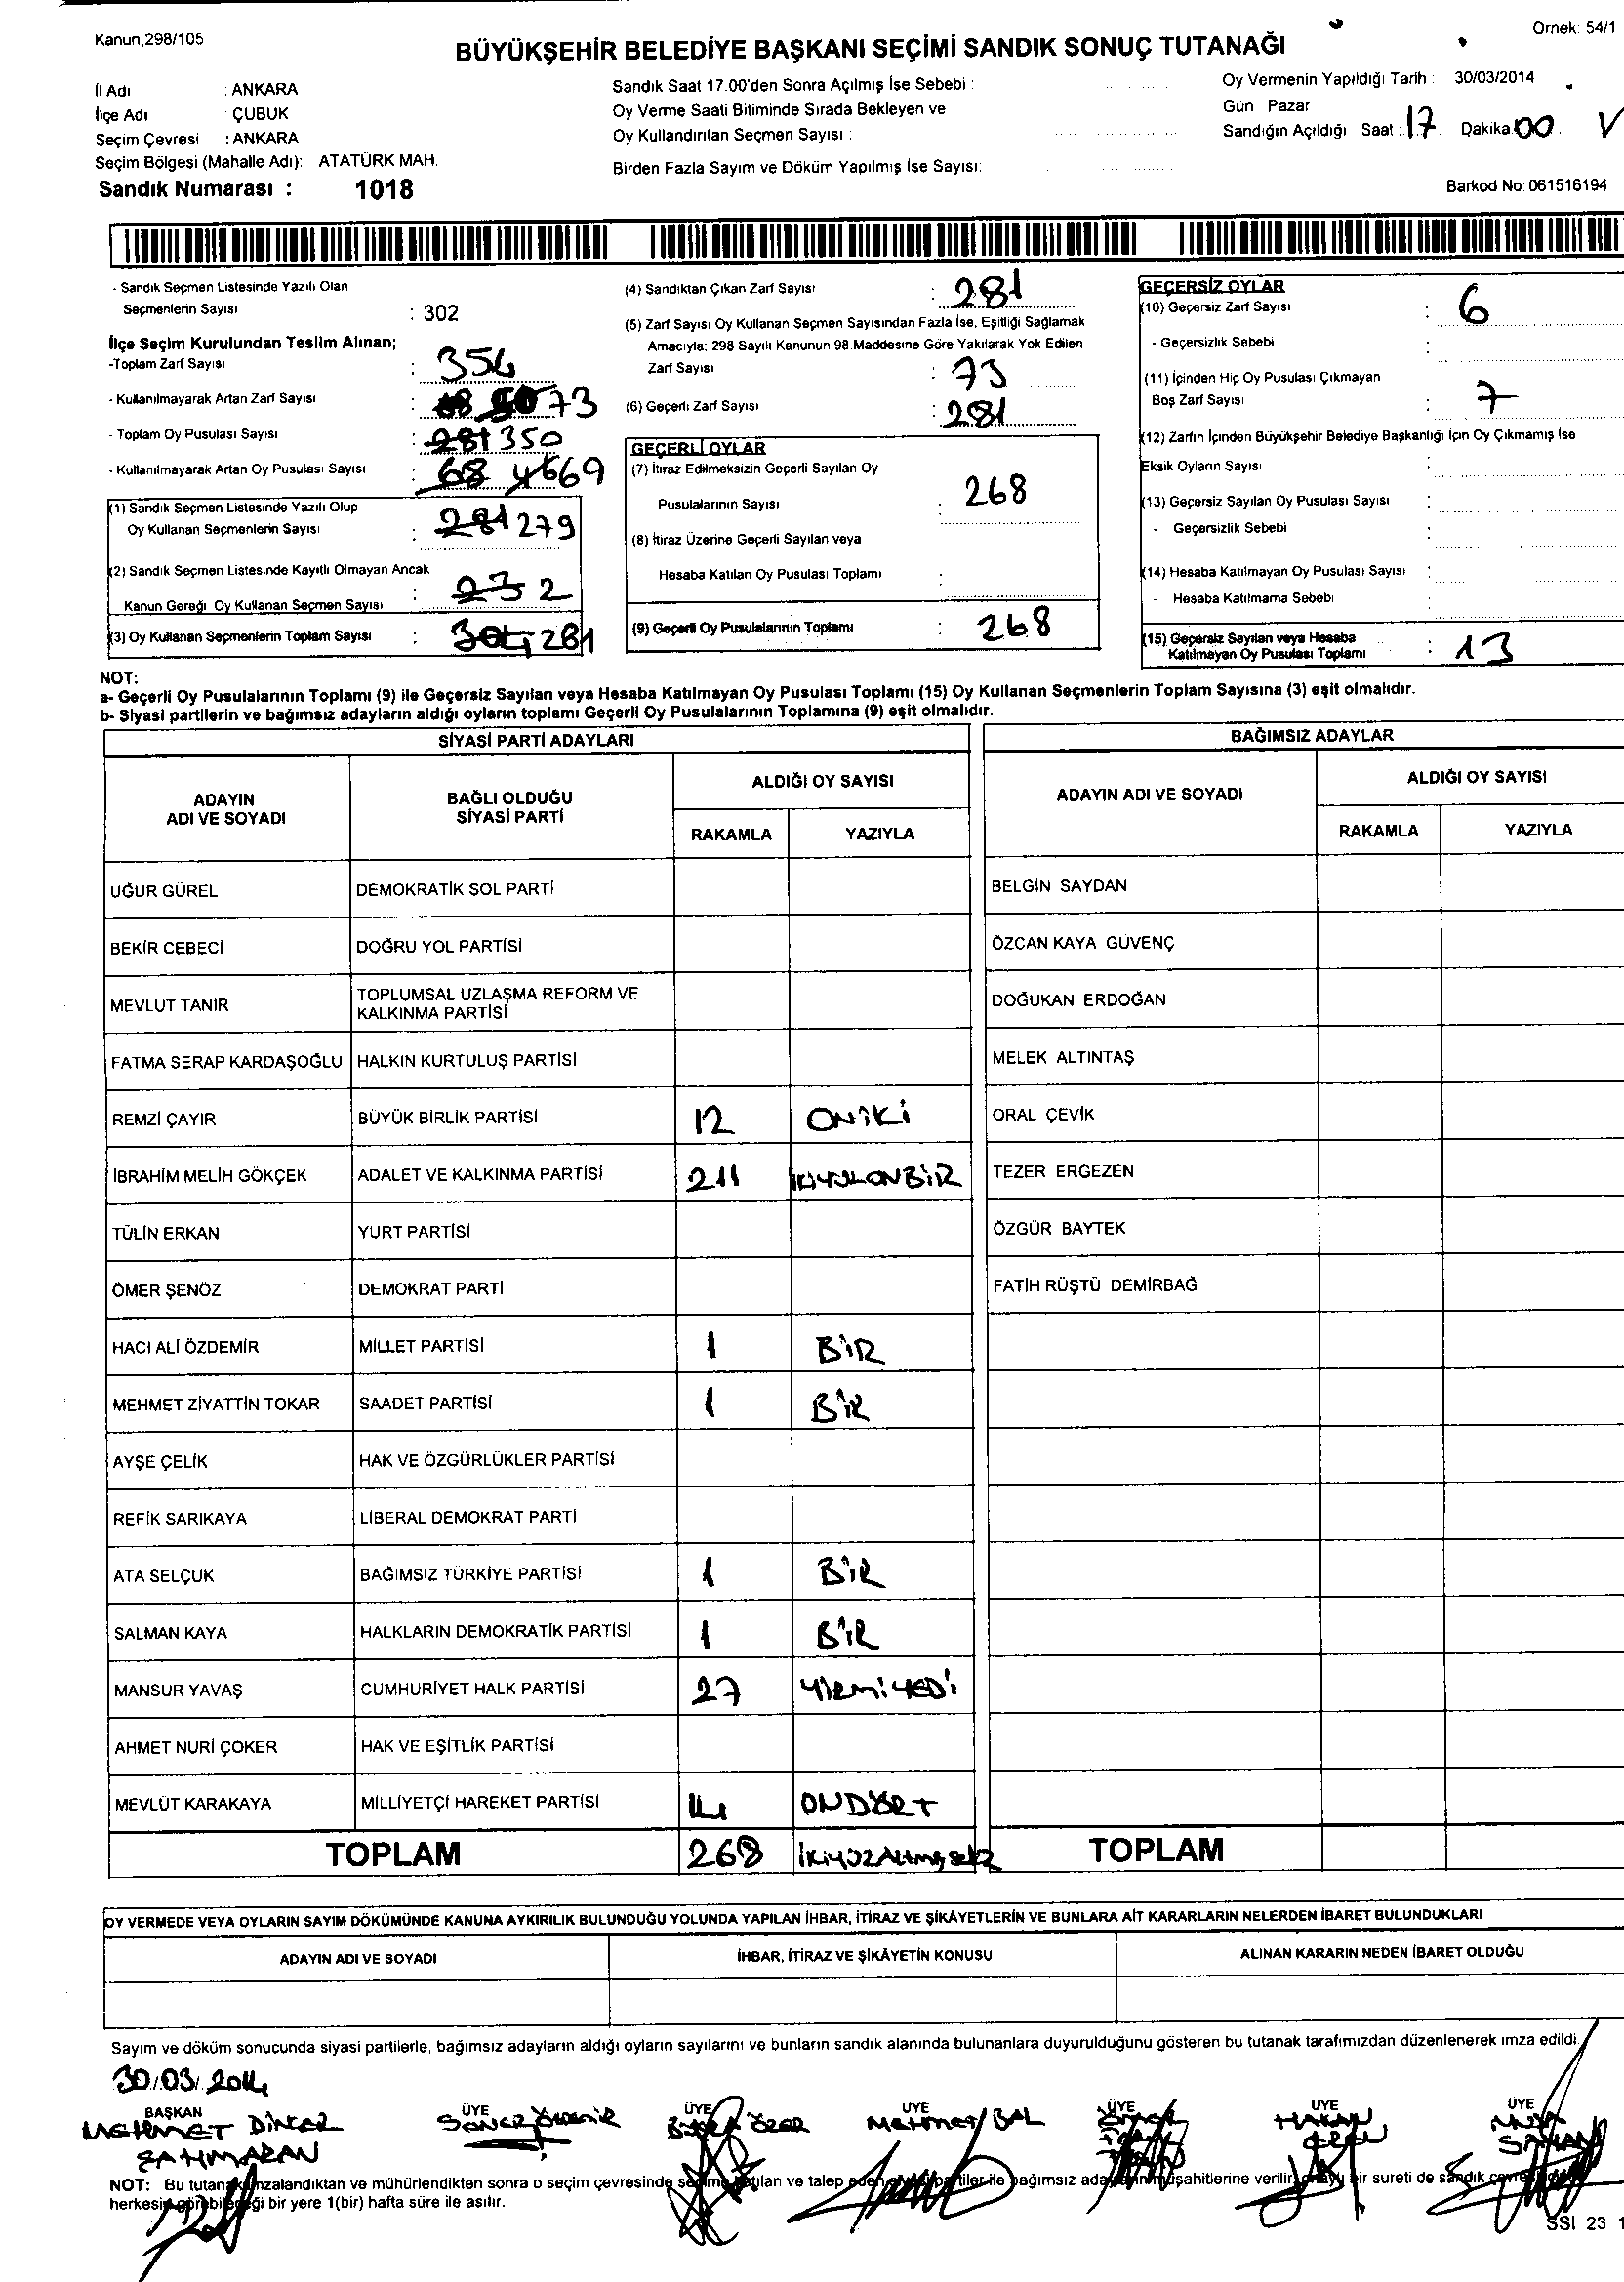 Kanun,298/105
Örnek: 54/1
BÜYÜKŞEHİR BELEDİYE BAŞKANI SEÇİMİ SANDIK SONUÇ TUTANAĞI
İl Adı : ANKARA
İlçe Adı : ÇUBUK
Seçim Çevresi : ANKARA
Seçim Bölgesi (Mahalle Adı): ATATÜRK MAH.
Sandık Numarası : 1018
Sandık Saat 17.00'den Sonra Açılmış İse Sebebi :
Oy Verme Saati Bitiminde Sırada Bekleyen ve
Oy Kullandırılan Seçmen Sayısı :
Birden Fazla Sayım ve Döküm Yapılmış İse Sayısı:
Oy Vermenin Yapıldığı Tarih : 30/03/2014
Gün Pazar
Sandığın Açıldığı Saat : 17 Dakika 00
Barkod No: 061516194
- Sandık Seçmen Listesinde Yazılı Olan
Seçmenlerin Sayısı : 302
İlçe Seçim Kurulundan Teslim Alınan;
-Toplam Zarf Sayısı : 354
- Kullanılmayarak Artan Zarf Sayısı : 73
- Toplam Oy Pusulası Sayısı : 281 350
- Kullanılmayarak Artan Oy Pusulası Sayısı : 68 69
(1) Sandık Seçmen Listesinde Yazılı Olup
Oy Kullanan Seçmenlerin Sayısı : 281 279
(2) Sandık Seçmen Listesinde Kayıtlı Olmayan Ancak
Kanun Gereği Oy Kullanan Seçmen Sayısı : 2
(3) Oy Kullanan Seçmenlerin Toplam Sayısı : 304 281
(4) Sandıktan Çıkan Zarf Sayısı : 281
(5) Zarf Sayısı Oy Kullanan Seçmen Sayısından Fazla İse, Eşitliği Sağlamak
Amacıyla; 298 Sayılı Kanunun 98.Maddesine Göre Yakılarak Yok Edilen
Zarf Sayısı : 73
(6) Geçerli Zarf Sayısı : 281
GEÇERLİ OYLAR
(7) İtiraz Edilmeksizin Geçerli Sayılan Oy
Pusulalarının Sayısı : 268
(8) İtiraz Üzerine Geçerli Sayılan veya
Hesaba Katılan Oy Pusulası Toplamı :
(9) Geçerli Oy Pusulalarının Toplamı : 268
GEÇERSİZ OYLAR
(10) Geçersiz Zarf Sayısı : 6
- Geçersizlik Sebebi :
(11) İçinden Hiç Oy Pusulası Çıkmayan
Boş Zarf Sayısı : 7
(12) Zarfın İçinden Büyükşehir Belediye Başkanlığı İçin Oy Çıkmamış İse
Eksik Oyların Sayısı :
(13) Geçersiz Sayılan Oy Pusulası Sayısı :
- Geçersizlik Sebebi :
(14) Hesaba Katılmayan Oy Pusulası Sayısı :
- Hesaba Katılmama Sebebi :
(15) Geçersiz Sayılan veya Hesaba
Katılmayan Oy Pusulası Toplamı : 13
NOT:
a- Geçerli Oy Pusulalarının Toplamı (9) ile Geçersiz Sayılan veya Hesaba Katılmayan Oy Pusulası Toplamı (15) Oy Kullanan Seçmenlerin Toplam Sayısına (3) eşit olmalıdır.
b- Siyasi partilerin ve bağımsız adayların aldığı oyların toplamı Geçerli Oy Pusulalarının Toplamına (9) eşit olmalıdır.
SİYASİ PARTİ ADAYLARI
ADAYIN ADI VE SOYADI
BAĞLI OLDUĞU SİYASİ PARTİ
ALDIĞI OY SAYISI
RAKAMLA YAZIYLA
UĞUR GÜREL DEMOKRATİK SOL PARTİ
BEKİR CEBECİ DOĞRU YOL PARTİSİ
MEVLÜT TANIR TOPLUMSAL UZLAŞMA REFORM VE
KALKINMA PARTİSİ
FATMA SERAP KARDAŞOĞLU HALKIN KURTULUŞ PARTİSİ
REMZİ ÇAYIR BÜYÜK BİRLİK PARTİSİ 12 ONİKİ
İBRAHİM MELİH GÖKÇEK ADALET VE KALKINMA PARTİSİ 211 İKİYÜZONBİR
TÜLİN ERKAN YURT PARTİSİ
ÖMER ŞENÖZ DEMOKRAT PARTİ
HACI ALİ ÖZDEMİR MİLLET PARTİSİ 1 BİR
MEHMET ZİYATTİN TOKAR SAADET PARTİSİ 1 BİR
AYŞE ÇELİK HAK VE ÖZGÜRLÜKLER PARTİSİ
REFİK SARIKAYA LİBERAL DEMOKRAT PARTİ
ATA SELÇUK BAĞIMSIZ TÜRKİYE PARTİSİ 1 BİR
SALMAN KAYA HALKLARIN DEMOKRATİK PARTİSİ 1 BİR
MANSUR YAVAŞ CUMHURİYET HALK PARTİSİ 27 YİRMİYEDİ
AHMET NURİ ÇOKER HAK VE EŞİTLİK PARTİSİ
MEVLÜT KARAKAYA MİLLİYETÇİ HAREKET PARTİSİ 14 ONDÖRT
TOPLAM 268 İKİYÜZALTMIŞSEKİZ
BAĞIMSIZ ADAYLAR
ADAYIN ADI VE SOYADI
ALDIĞI OY SAYISI
RAKAMLA YAZIYLA
BELGİN SAYDAN
ÖZCAN KAYA GÜVENÇ
DOĞUKAN ERDOĞAN
MELEK ALTINTAŞ
ORAL ÇEVİK
TEZER ERGEZEN
ÖZGÜR BAYTEK
FATİH RÜŞTÜ DEMİRBAĞ
TOPLAM
OY VERMEDE VEYA OYLARIN SAYIM DÖKÜMÜNDE KANUNA AYKIRILIK BULUNDUĞU YOLUNDA YAPILAN İHBAR, İTİRAZ VE ŞİKÂYETLERİN VE BUNLARA AİT KARARLARIN NELERDEN İBARET BULUNDUKLARI
ADAYIN ADI VE SOYADI İHBAR, İTİRAZ VE ŞİKÂYETİN KONUSU ALINAN KARARIN NEDEN İBARET OLDUĞU
Sayım ve döküm sonucunda siyasi partilerle, bağımsız adayların aldığı oyların sayılarını ve bunların sandık alanında bulunanlara duyurulduğunu gösteren bu tutanak tarafımızdan düzenlenerek imza edildi.
30/03/2014
BAŞKAN ÜYE ÜYE ÜYE ÜYE ÜYE ÜYE
MEHMET DİNÇER ÖZER MEHMET BAL HAKAN
ŞAHMARAN
NOT: Bu tutanak imzalandıktan ve mühürlendikten sonra o seçim çevresinde seçime katılan ve talep eden siyasi partiler ile bağımsız adayların müşahitlerine verilir, onaylı bir sureti de sandık çevresinde
herkesin görebileceği bir yere 1(bir) hafta süre ile asılır.
SSI 23 1